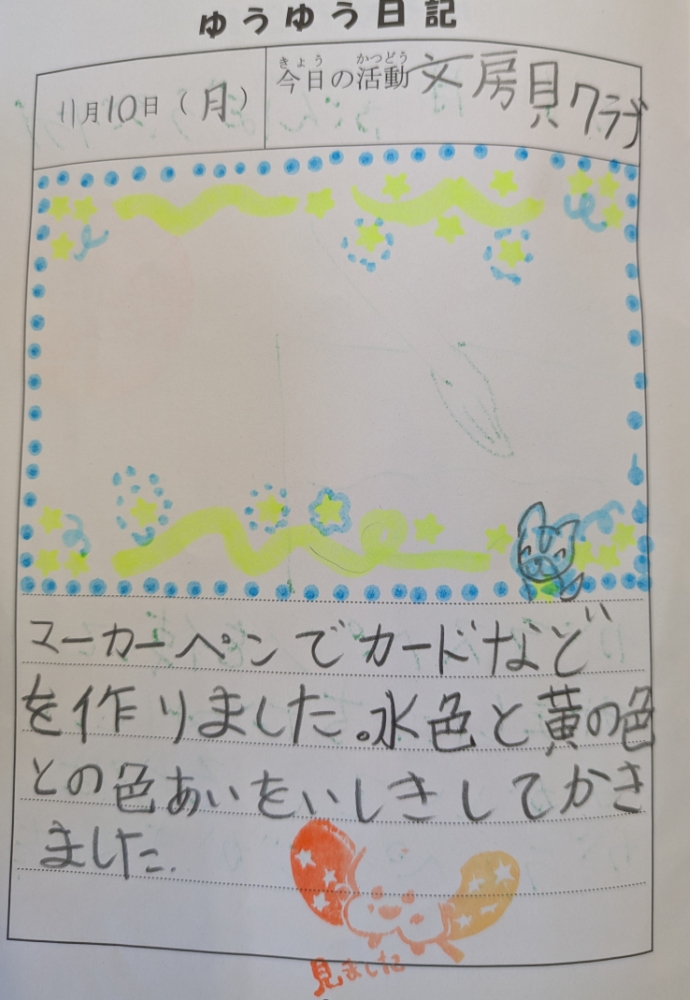 ゆうゆう日記
11月10日(月)
きょう かつどう
今日の活動 文房具クラブ
マーカーペンでカードなど
を作りました。水色と黄の色
との色あいをいしきしてかき
ました.
見ました